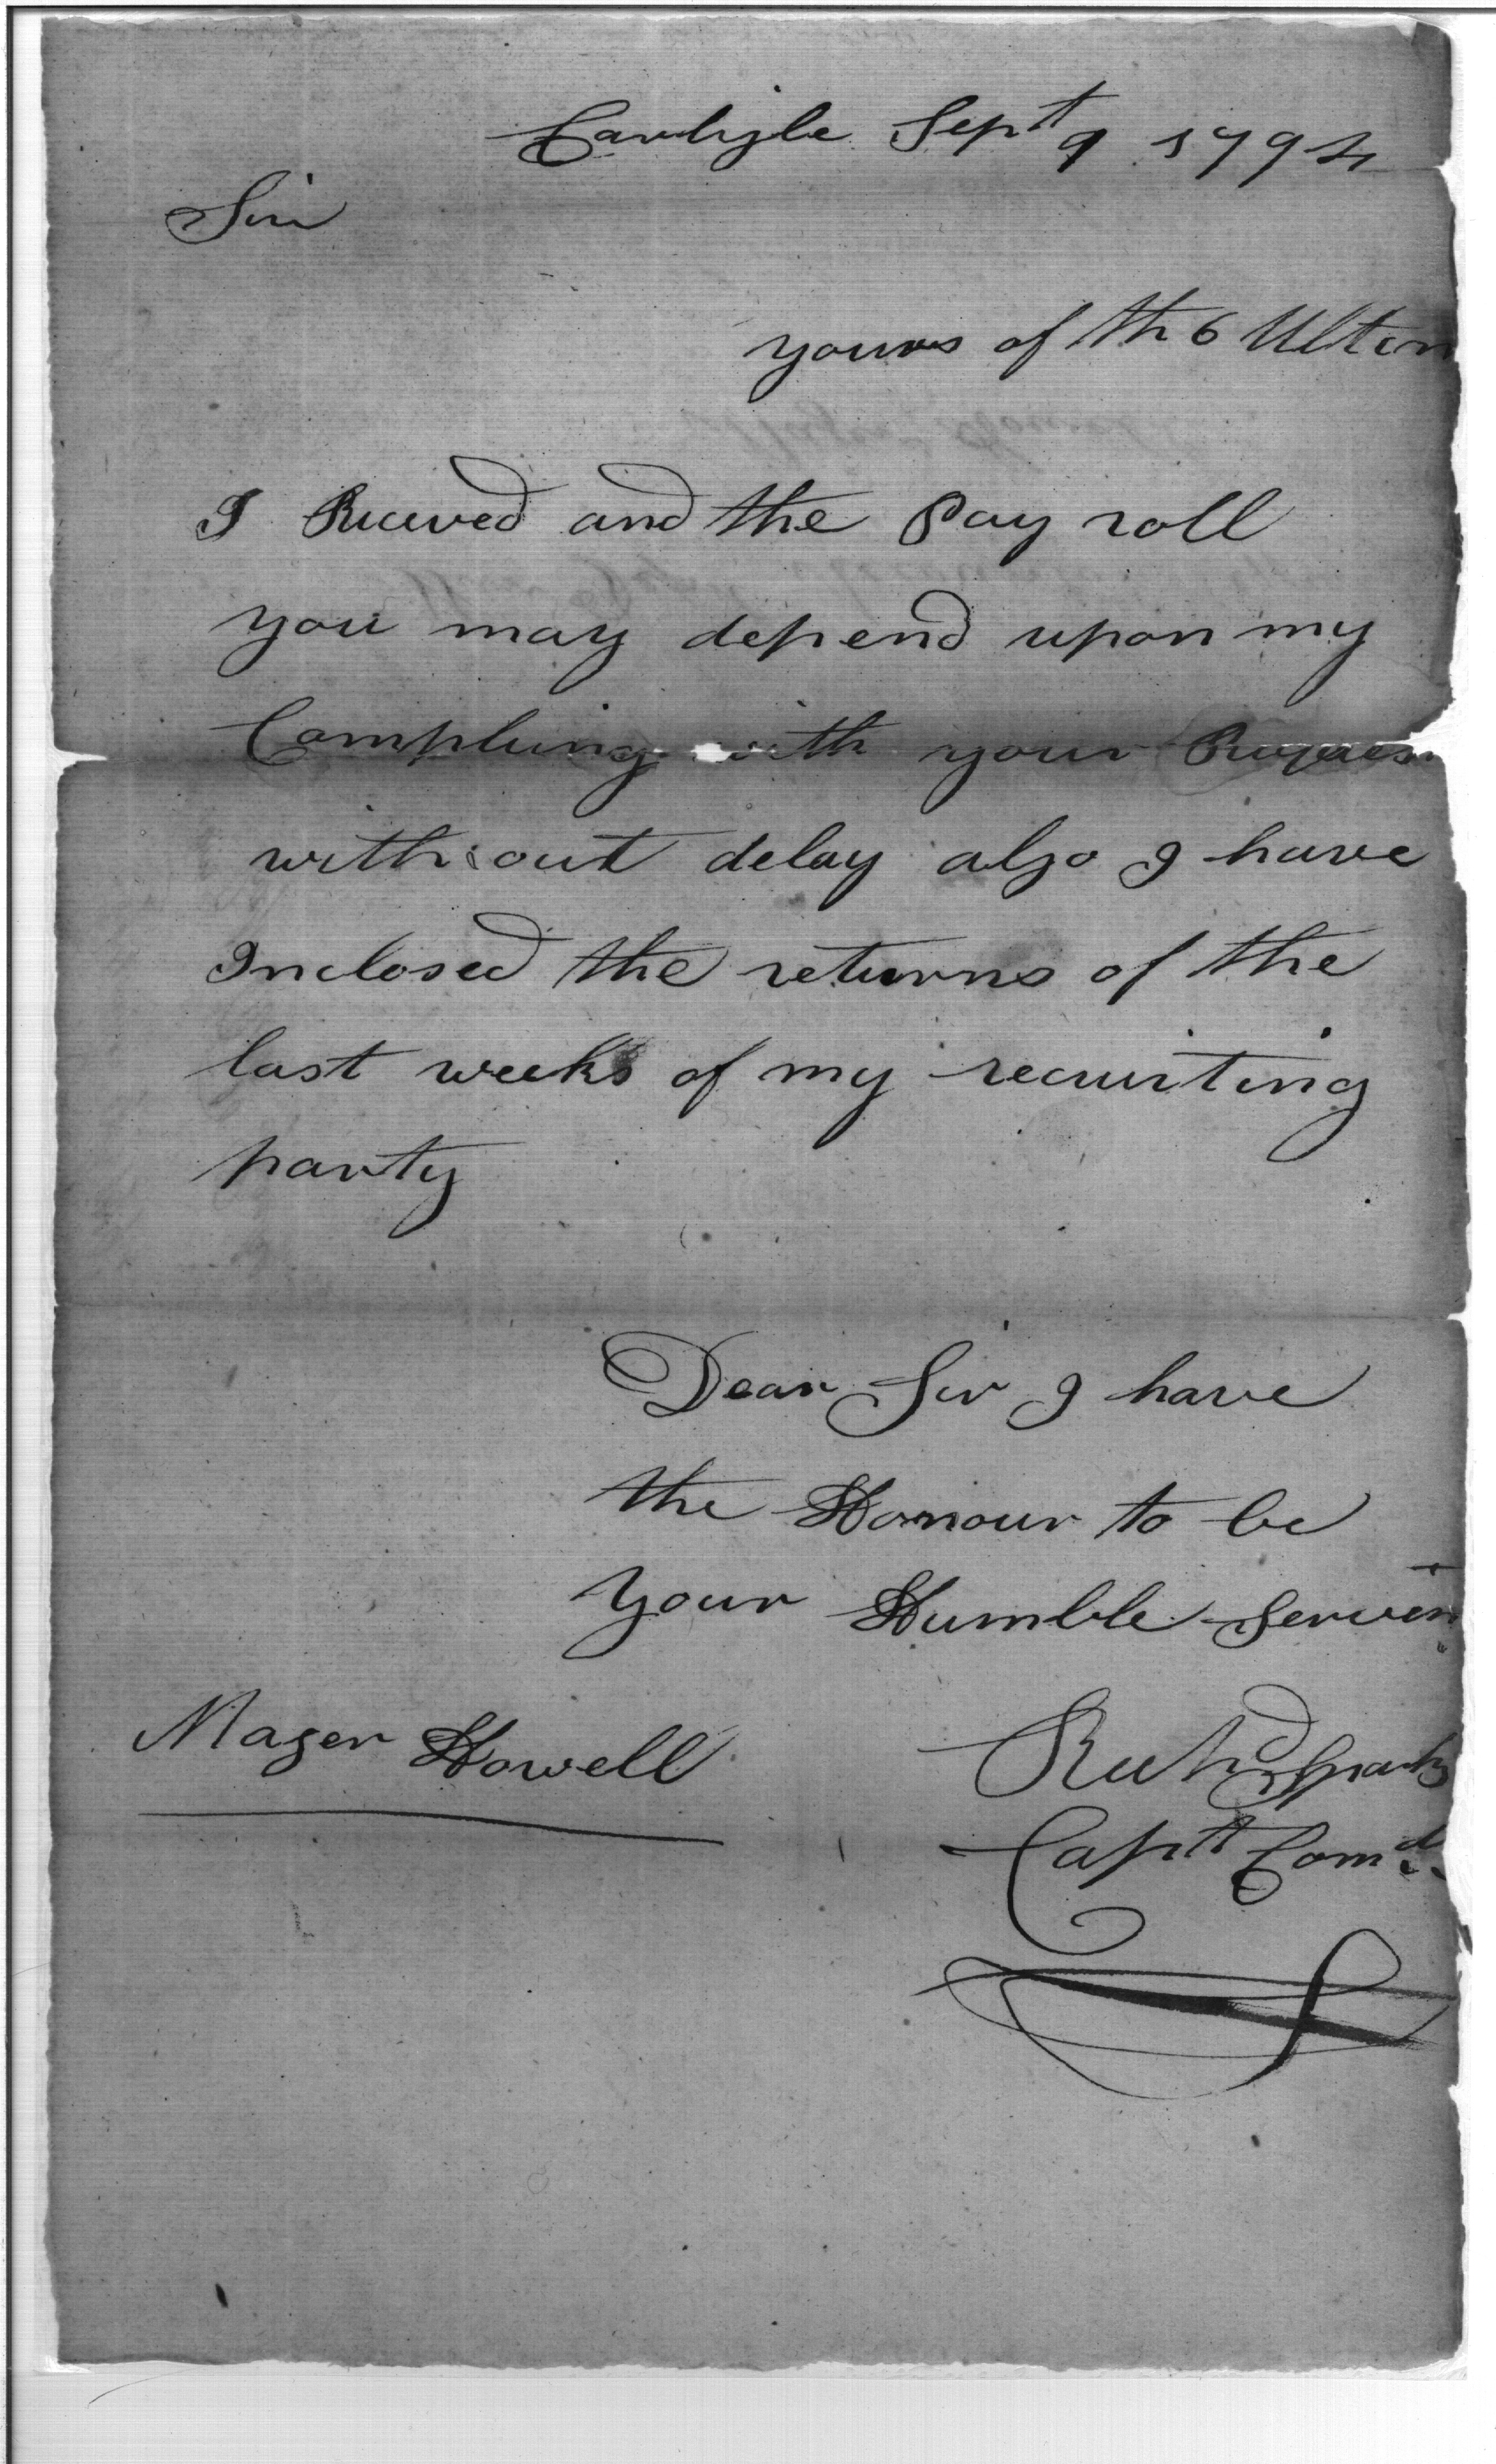 Carlisle Sept 9 1794
Sir
yours of th 6 Ultim
I Receved and the Pay roll
you may depend upon my
Compluing with your Reques
with out delay also I have
Inclosed the returns of the
last weeks of my recruiting
party
Dear Sir I have
the Honour to be
your Humble Servent
Mager Howell
Richd Sparks
Captt Comd